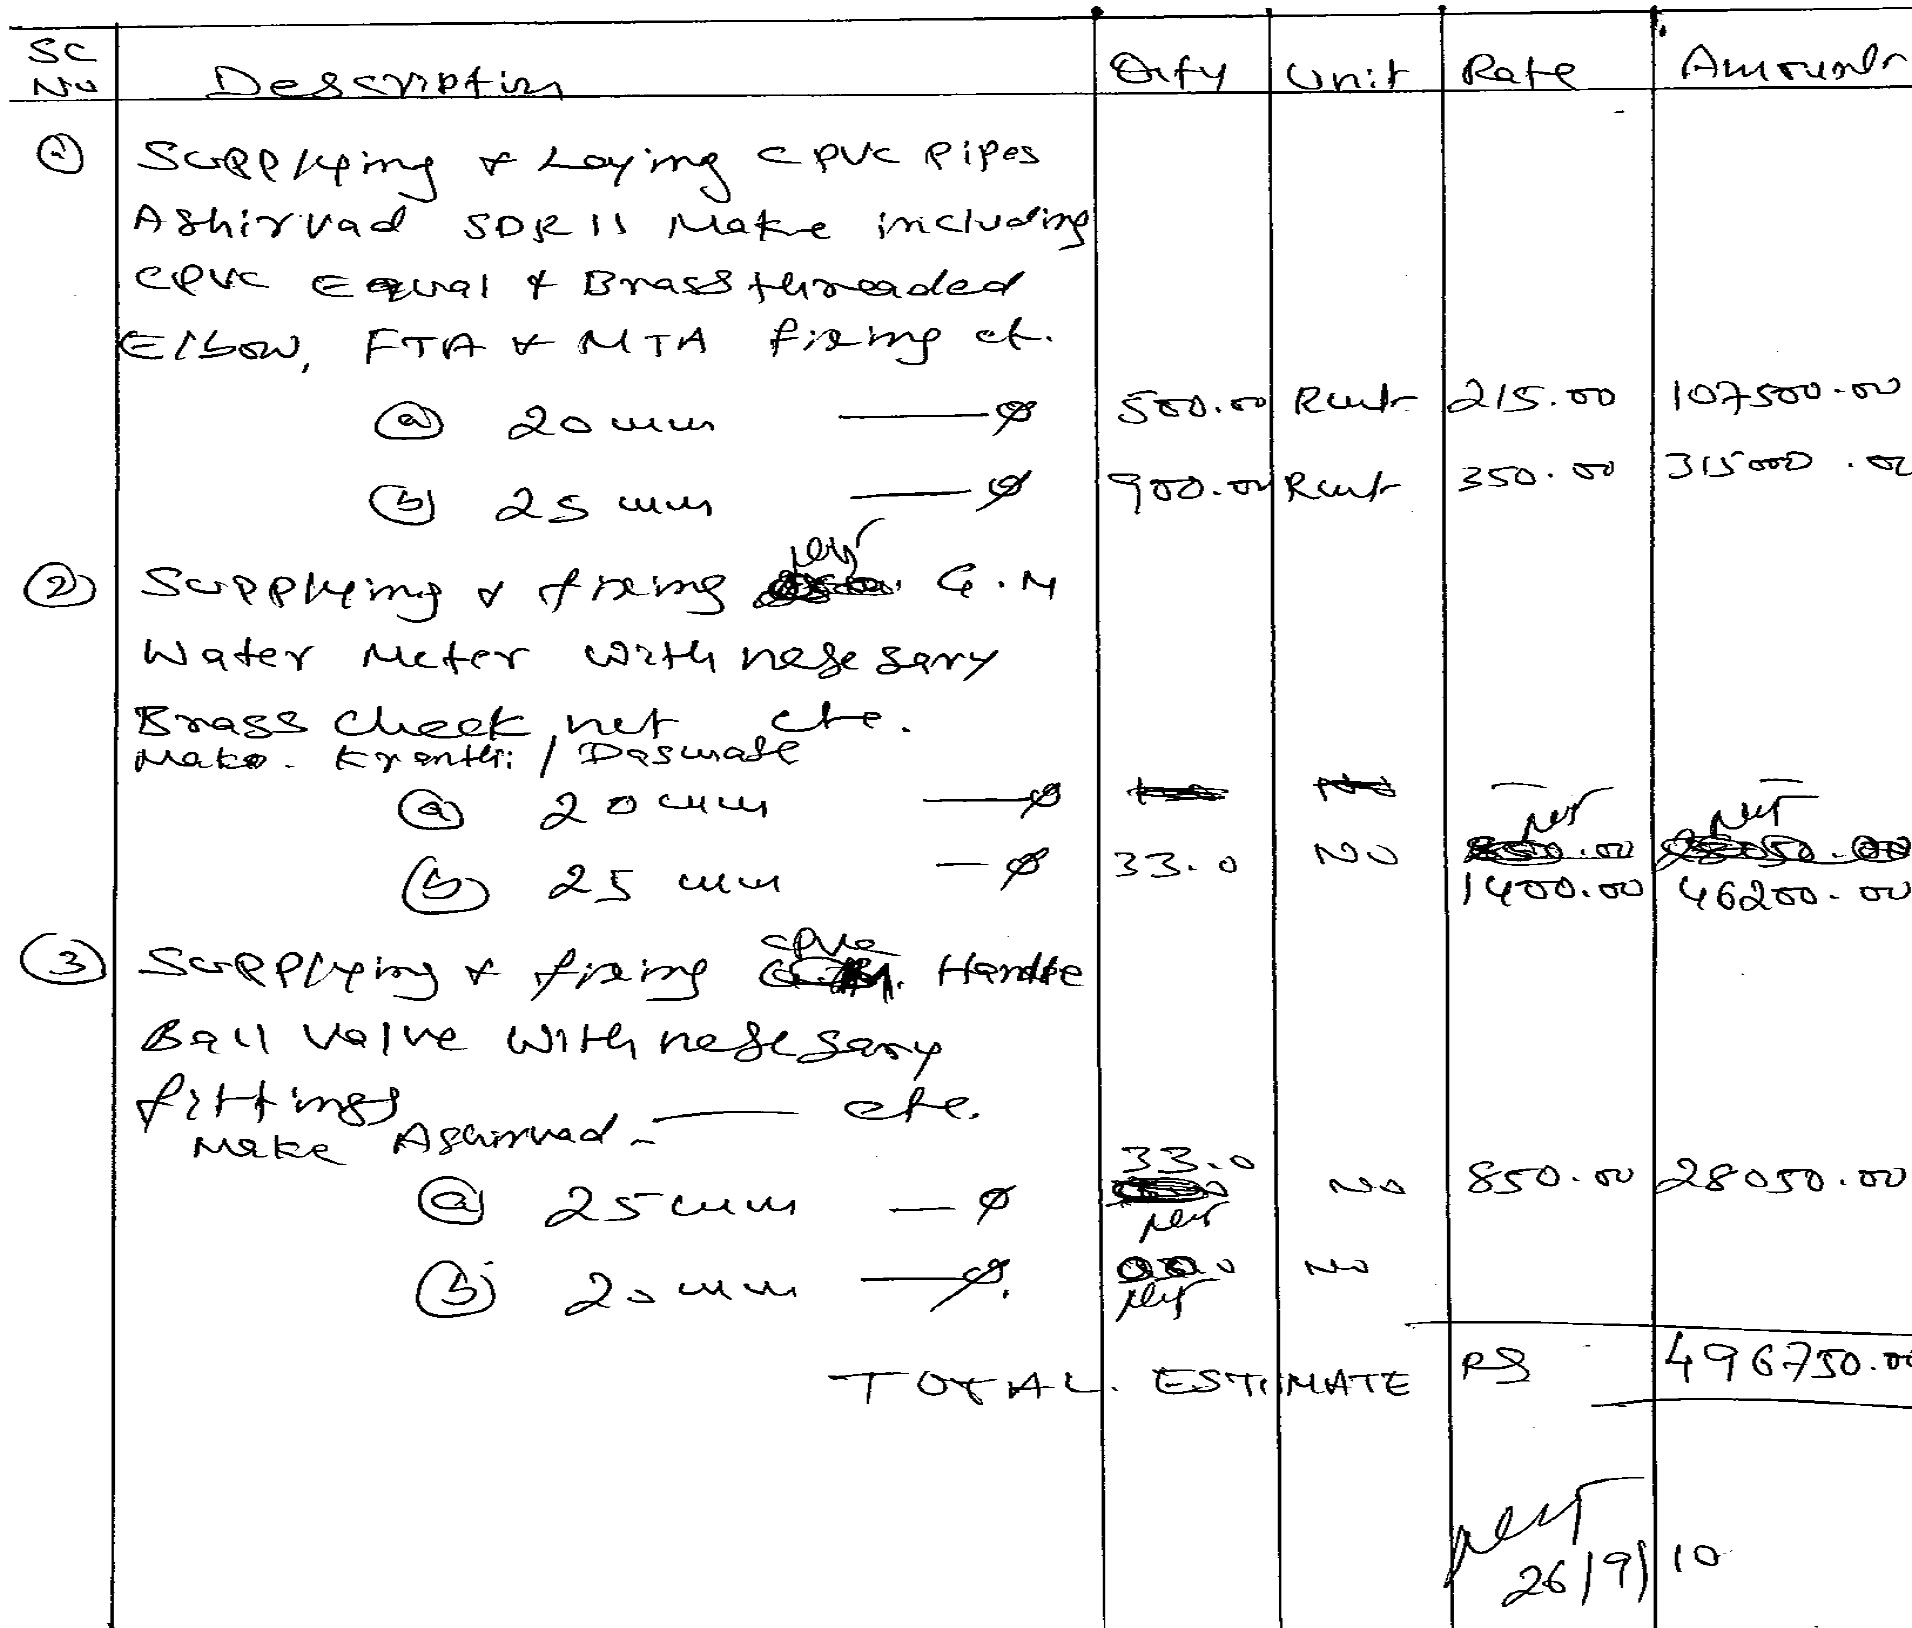 SC
No Description Qity Unit Rate Amount
1 Supplying & Laying CPVC Pipes
Ashirvad SDR 11 Make including
CPVC Equal & Brass threaded
Elbow, FTA & MTA fixing et.
(a) 20 mm — ø 500.00 Rmt 215.00 107500.00
(b) 25 mm — ø 900.00 Rmt 350.00 315000.00
2 Supplying & fixing G.M
Water Meter with nesesary
Brass Check nut etc.
Make. Kranthi / Dasmate
(a) 20 mm — ø — —
(b) 25 mm — ø 33.0 No
1400.00 46200.00
cpvc
3 Supplying & fixing Handle
Ball Valve with nesesary
fittings — etc.
Make Ashirvad -
33.0
(a) 25 mm — ø No 850.00 28050.00
(b) 20 mm — ø. No
TOTAL. ESTIMATE RS 496750.00
26/9/10